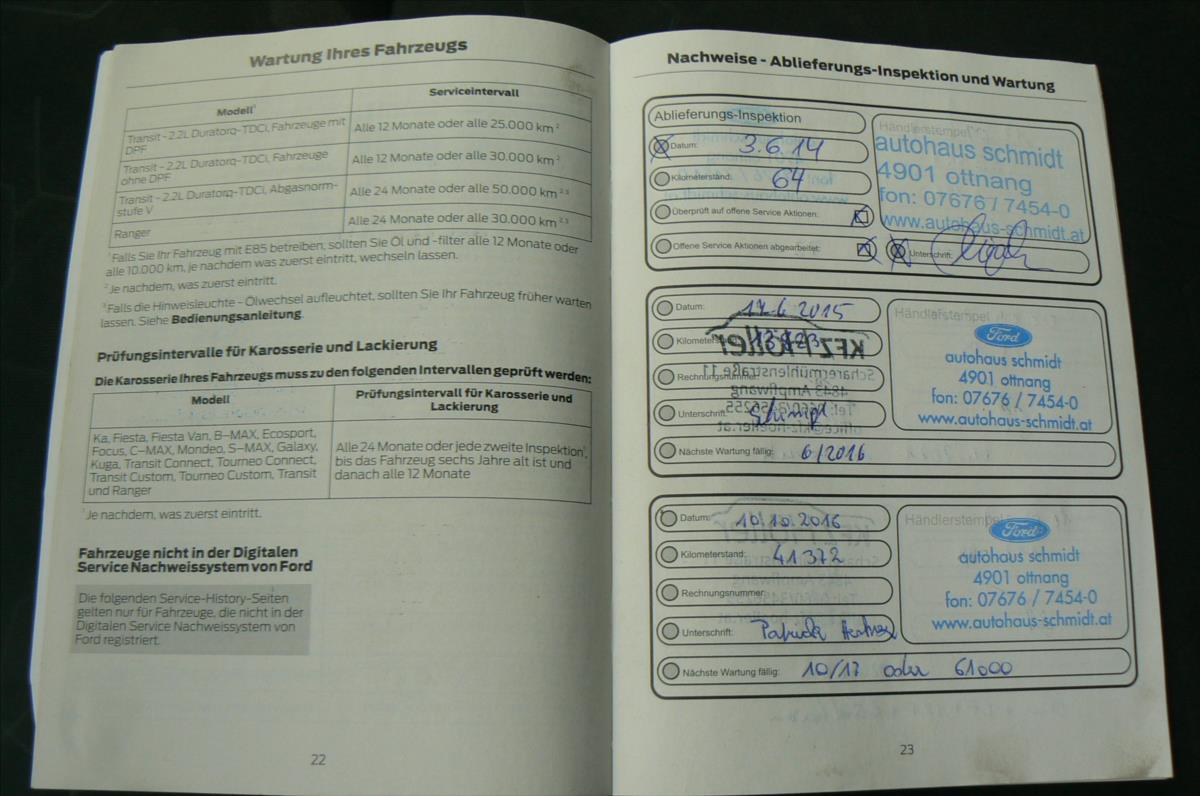 Wartung Ihres Fahrzeugs
Modell¹ Serviceintervall
Transit - 2.2L Duratorq-TDCi, Fahrzeuge mit DPF Alle 12 Monate oder alle 25.000 km ²
Transit - 2.2L Duratorq-TDCi, Fahrzeuge ohne DPF Alle 12 Monate oder alle 30.000 km ²
Transit - 2.2L Duratorq-TDCi, Abgasnorm-
stufe V Alle 24 Monate oder alle 50.000 km ²·³
Ranger Alle 24 Monate oder alle 30.000 km ²·³
¹Falls Sie Ihr Fahrzeug mit E85 betreiben, sollten Sie Öl und -filter alle 12 Monate oder
alle 10.000 km, je nachdem was zuerst eintritt, wechseln lassen.
² Je nachdem, was zuerst eintritt.
³Falls die Hinweisleuchte - Ölwechsel aufleuchtet, sollten Sie Ihr Fahrzeug früher warten
lassen. Siehe Bedienungsanleitung.
Prüfungsintervalle für Karosserie und Lackierung
Die Karosserie Ihres Fahrzeugs muss zu den folgenden Intervallen geprüft werden:
Modell Prüfungsintervall für Karosserie und
Lackierung
Ka, Fiesta, Fiesta Van, B-MAX, Ecosport,
Focus, C-MAX, Mondeo, S-MAX, Galaxy,
Kuga, Transit Connect, Tourneo Connect,
Transit Custom, Tourneo Custom, Transit
und Ranger
Alle 24 Monate oder jede zweite Inspektion¹,
bis das Fahrzeug sechs Jahre alt ist und
danach alle 12 Monate
¹Je nachdem, was zuerst eintritt.
Fahrzeuge nicht in der Digitalen
Service Nachweissystem von Ford
Die folgenden Service-History-Seiten
gelten nur für Fahrzeuge, die nicht in der
Digitalen Service Nachweissystem von
Ford registriert.
22
Nachweise - Ablieferungs-Inspektion und Wartung
Ablieferungs-Inspektion
Datum: 3.6.14
Kilometerstand: 64
Überprüft auf offene Service Aktionen:
Offene Service Aktionen abgearbeitet:
Unterschrift:
Händlerstempel
autohaus schmidt
4901 ottnang
fon: 07676 / 7454-0
www.autohaus-schmidt.at
Datum: 17.6.2015
Kilometerstand:
Rechnungsnummer:
Unterschrift:
Nächste Wartung fällig: 6/2016
Händlerstempel
Ford
autohaus schmidt
4901 ottnang
fon: 07676 / 7454-0
www.autohaus-schmidt.at
Datum: 10.10.2016
Kilometerstand: 41372
Rechnungsnummer:
Unterschrift:
Nächste Wartung fällig: 10/17 oder 61000
Händlerstempel
Ford
autohaus schmidt
4901 ottnang
fon: 07676 / 7454-0
www.autohaus-schmidt.at
23